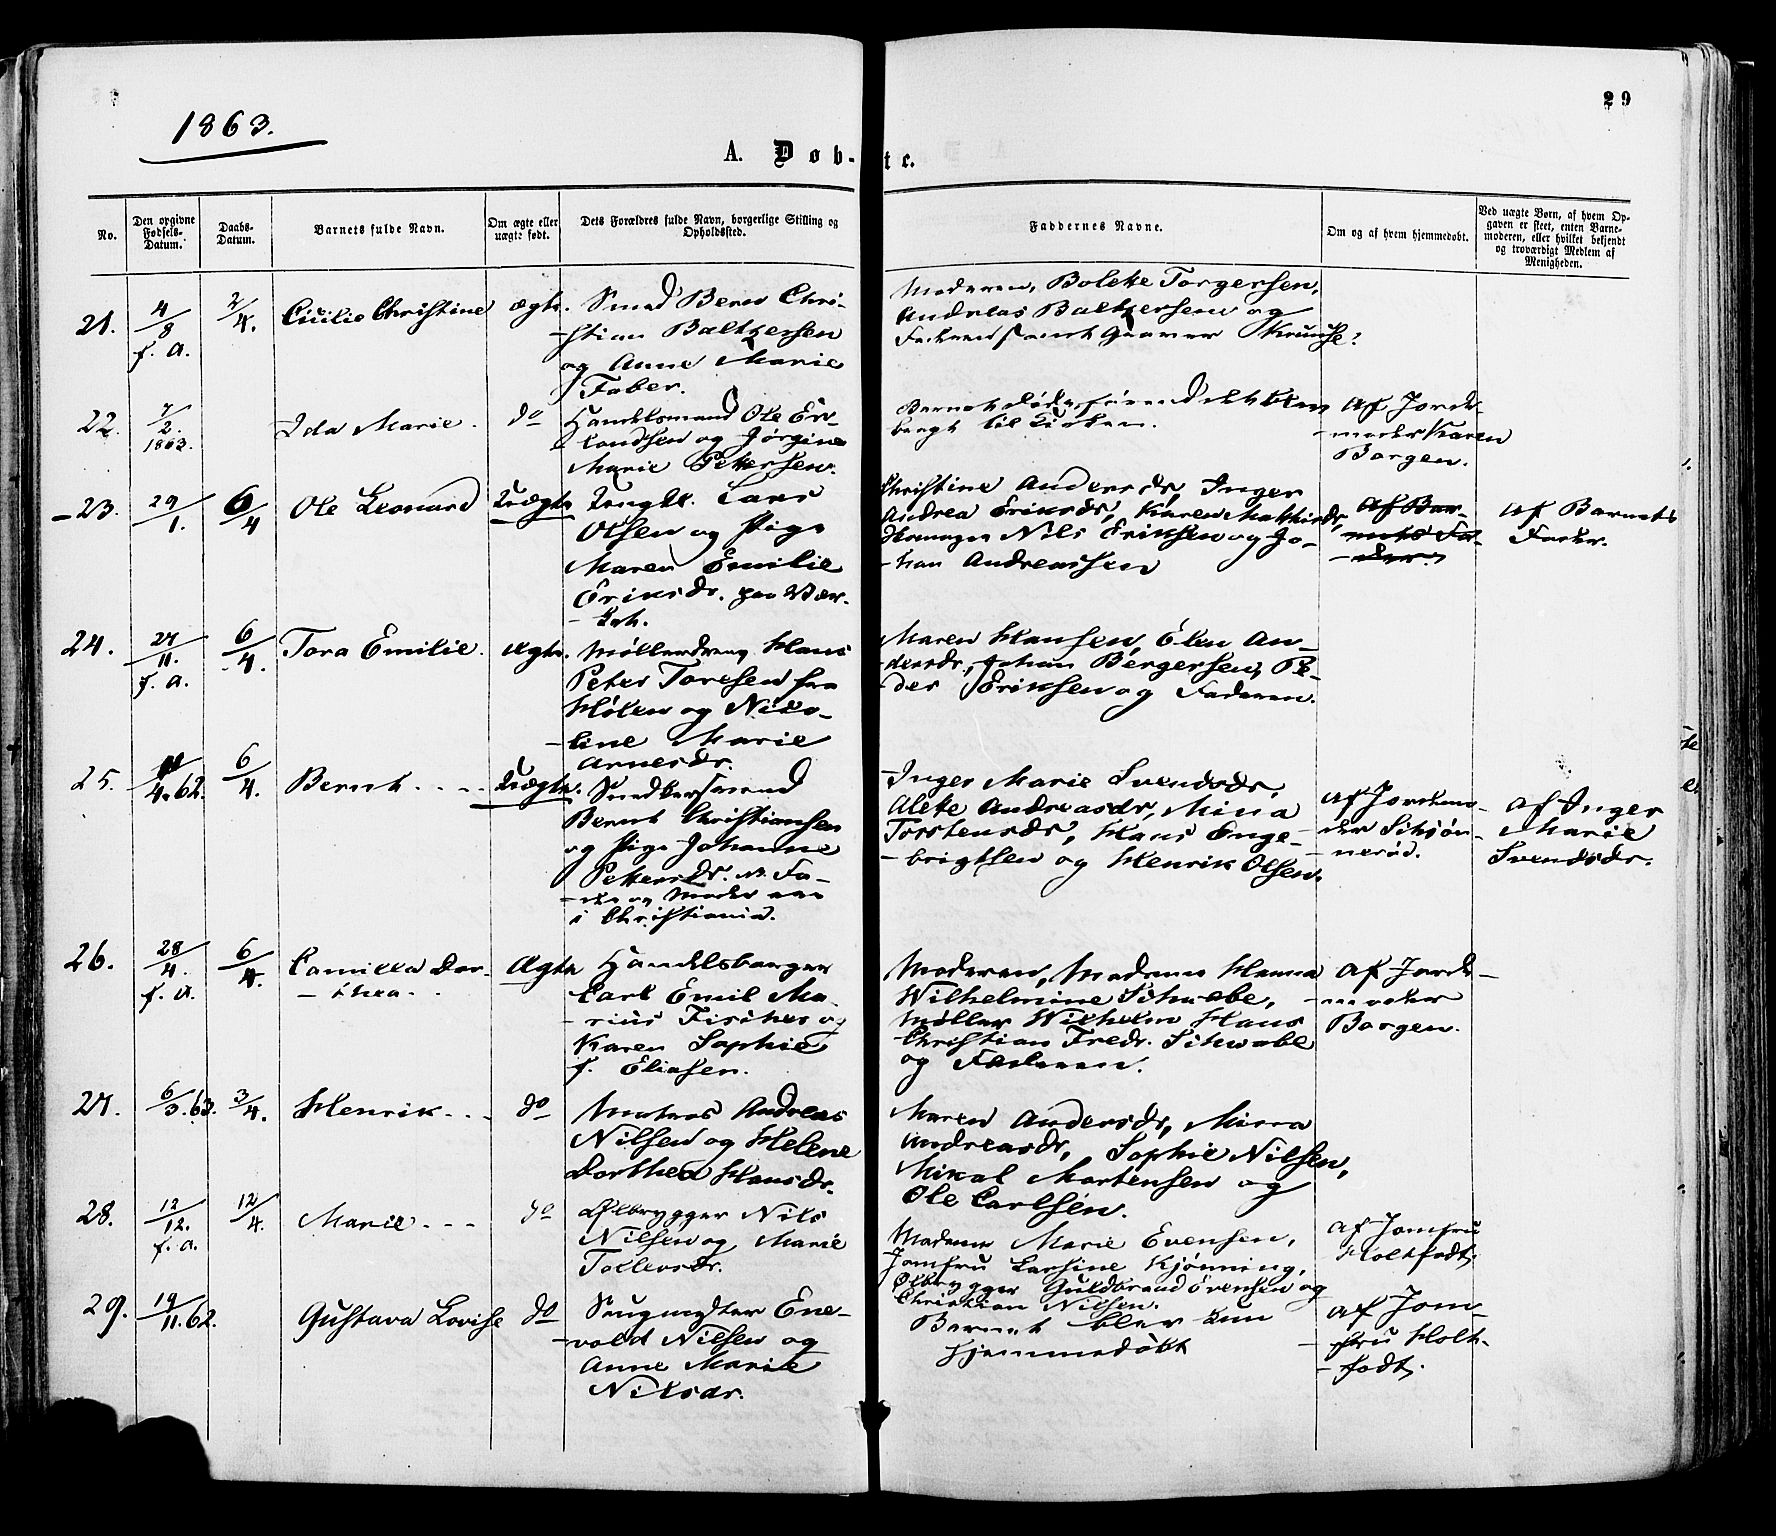 1863.
29
A. Døb-
te.
No.
Den opgivne
Fødsels-
Datum.
Daabs-
Datum.
Barnets fulde Navn.
Om ægte eller
uægte født.
Dets Forældres fulde Navn, borgerlige Stilling og
Opholdssted.
Faddernes Navne.
Om og af hvem hjemmedøbt.
Ved uægte Børn, af hvem Op-
gaven er skeet, enten Barne-
moderen, eller hvilket bekjendt
og troværdigt Medlem af
Menigheden.
21.
4/8
f. a.
2/4.
Cicilie Christine
ægte.
Smed Bern Chri-
stian Baltzersen
og Anne Marie
Faber.
Moderen, Bolette Torgersen,
Andreas Baltzersen og
Faderen samt
22.
7/2.
1863.
Ida Marie.
do
Handelsmand Ole Er-
landsen og Jørgine
Marie Pettersen.
Barnet døde førend det blev
bragt til Kirken.
Af Jorde-
moder Karen
Borgen.
23.
29/1.
6/4
Ole Leonard
Uægte
Ungk. Lars
Olsen og Pige
Maren Emilie
Eriksdr. paa Vær-
Christine Andersdr, Inger
Andrea Eriksdr, Karen Mathisdr,
Nils Eriksen og Jo-
han Andreassen
Af Bar-
nets Fa-
der.
Af Barnets
Fader.
24.
27/11.
f. a.
6/4.
Tora Emilie.
ægte.
Møllerdreng Hans
Peter Toresen fra
Hølen og Niko-
line Marie
Arnesdr.
Maren Hansen, Elen An-
dersdr, Johan Bergersen, Pe-
der Eriksen og Faderen.
25.
4.62.
6/4.
Bernt
Uægte.
Snedkersvend
Bernt Christiansen
og Pige Johanne
Pettersdr. Fa-
der og Moder
i Christiania.
Inger Marie Svendsdr,
Alete Andreasdr, Mina
Torstensdr, Hans Enge-
brigtsen og Henrik Olsen.
Af Jordemo-
der Sitsjøn-
nerød.
Af Inger
Marie
Svendsdr.
26.
28/4.
f. a.
6/4.
Camilla Dor-
thea
Ægte
Handelsborger
Carl Emil Ma-
rius Fischer og
Karen Sophie
f. Eliasen.
Moderen, Madame Hanna
Wilhelmine Schwabe,
Møller Wilhelm Hans
Christian Fredr. Schwabe
og Faderen.
Af Jorde-
moder
Borgen.
27.
6/3.63.
3/4.
Henrik
do
Matros Andreas
Nilsen og Helene
Dorthea Hansdr.
Maren Andersdr, Mina
Andreasdr, Sophie Nilsen,
Mikal Mortensen og
Ole Carlsen.
28.
12/12.
f. a.
12/4.
Marie
do
Ølbrygger Nils
Nilsen og Marie
Tollevsdr.
Madame Marie Evensen,
Jomfru Larsine Kjønning,
Ølbrygger Guldbrand Evensen og
Christian Nilsen.
Af Jomfru
Holtfodt.
29.
19/11.62.
Gustava Lovise
do
Ene-
vold Nilsen og
Anne Marie
Nilsdr.
Barnet blev kun
hjemmedøbt
Af Jom-
fru Holt-
fodt.